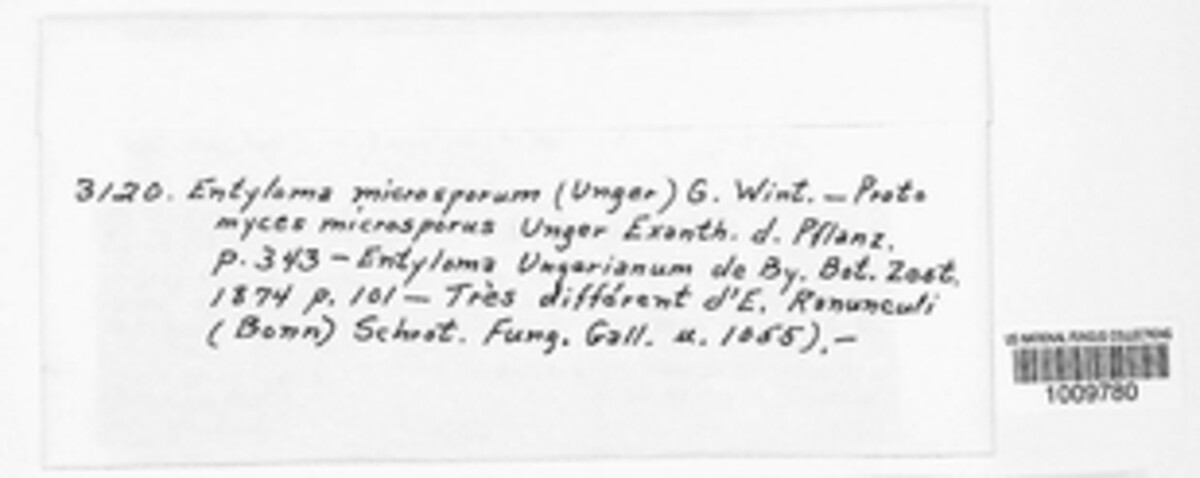 3120. Entyloma microsporum (Unger) G. Wint. — Proto
myces microsporus Unger Exanth. d. Pflanz.
p. 343 — Entyloma Ungerianum de By. Bot. Zeit.
1874 p. 101 — Très différent d'E. Ranunculi
(Bonn) Schrot. Fung. Gall. n. 1055). —
US NATIONAL FUNGUS COLLECTIONS
1009780